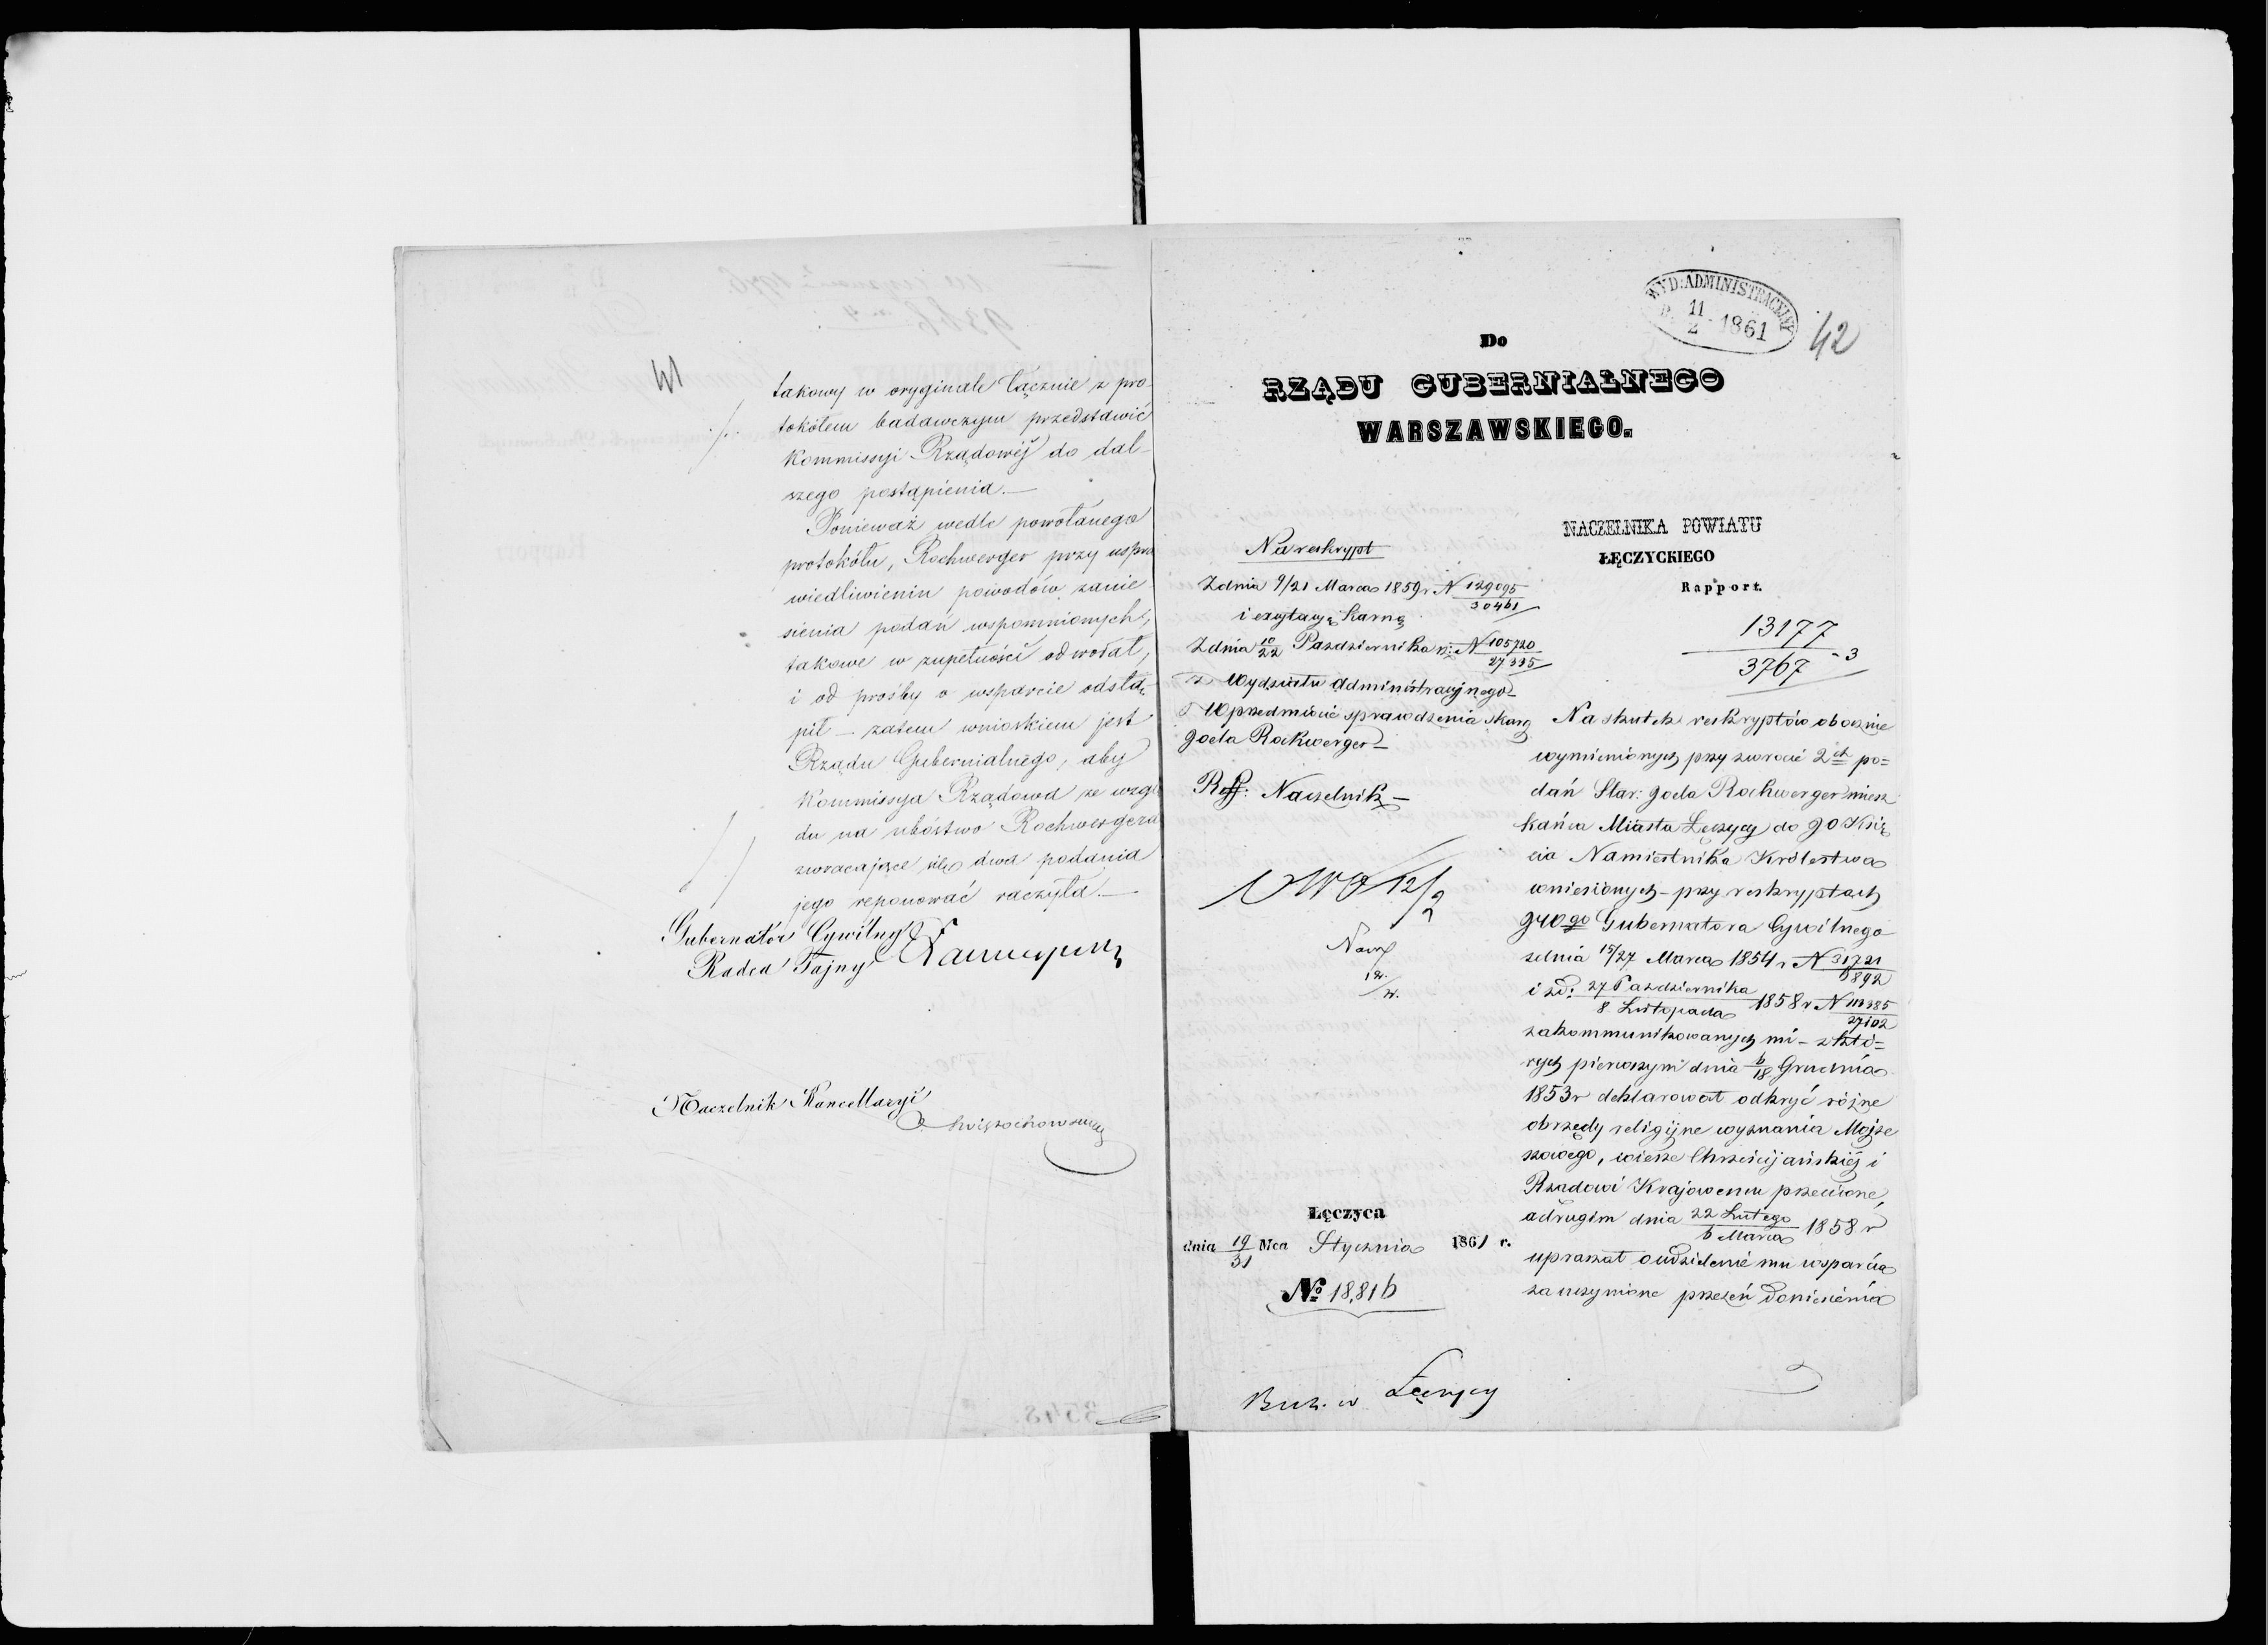 41
takowy w oryginale łącznie z pro-
tokółem badawczym przedstawić
Kommissyi Rządowéj do dal-
szego postąpienia.—
Ponieważ wedle powołanego
protokółu, Rochwerger przy uspra
wiedliwieniu powodów zanie
sienia podań wspomnionych,
takowe w zupełności odwołał,
i od prośby o wsparcie odstą-
pił — zatem wnioskiem jest
Rządu Gubernialnego, aby
Kommissya Rządowa ze wzglę
du na ubóstwo Rochwergera
zwracające się dwa podania
jego reponować raczyła.—
Gubernator Cywilny
Radca Tajny
Naczelnik Kancellaryi
WYD: ADMINISTRACYJNY
D. 11/2 1861
42
Do
RZĄDU GUBERNIALNEGO
WARSZAWSKIEGO.
NACZELNIKA POWIATU
ŁĘCZYCKIEGO
Rapport.
13177
3767 - 3
Na reskrypt
Zdnia 9/21 Marca 1859 r N 129095
30461
i exytacyą Karną
Zdnia 10/22 Pazdziernika N 105720
27335
Wydziału Administracyjnego
W przedmiocie sprawdzenia skarg
Joela Rochwerger —
Reff: Naczelnik —
12/2
Łęczyca
dnia 19/31 Mca Stycznia 1861 r.
№ 18,816
w Łęczycy
Na skutek reskryptów obocznie
wymienionych przy zwrocie 2ch po=
dań Star: Joela Rochwerger miesz
kańca Miasta Łęczycy do JO Księ
cia Namiestnika Królestwa
wniesionych — przy reskryptach
JWgo Gubernatora Cywilnego
zdnia 15/27 Marca 1854 r N 31721
6892
i zd: 27 Pazdziernika / 8 Listopada 1858 r N 113385
27102
zakommunikowanych mi — z któ=
rych pierwszym dnia 6/18 Grudnia
1853 r deklarował odkryć różne
obrzędy religijne wyznania Mojże
szowego, wierze Chrześcijańskiéj i
Rządowi Krajowemu przeciwne,
a drugim dnia 22 Lutego / 6 Marca 1858 r
upraszał o udzielenie mu wsparcia
za uczynione przezeń doniesienia